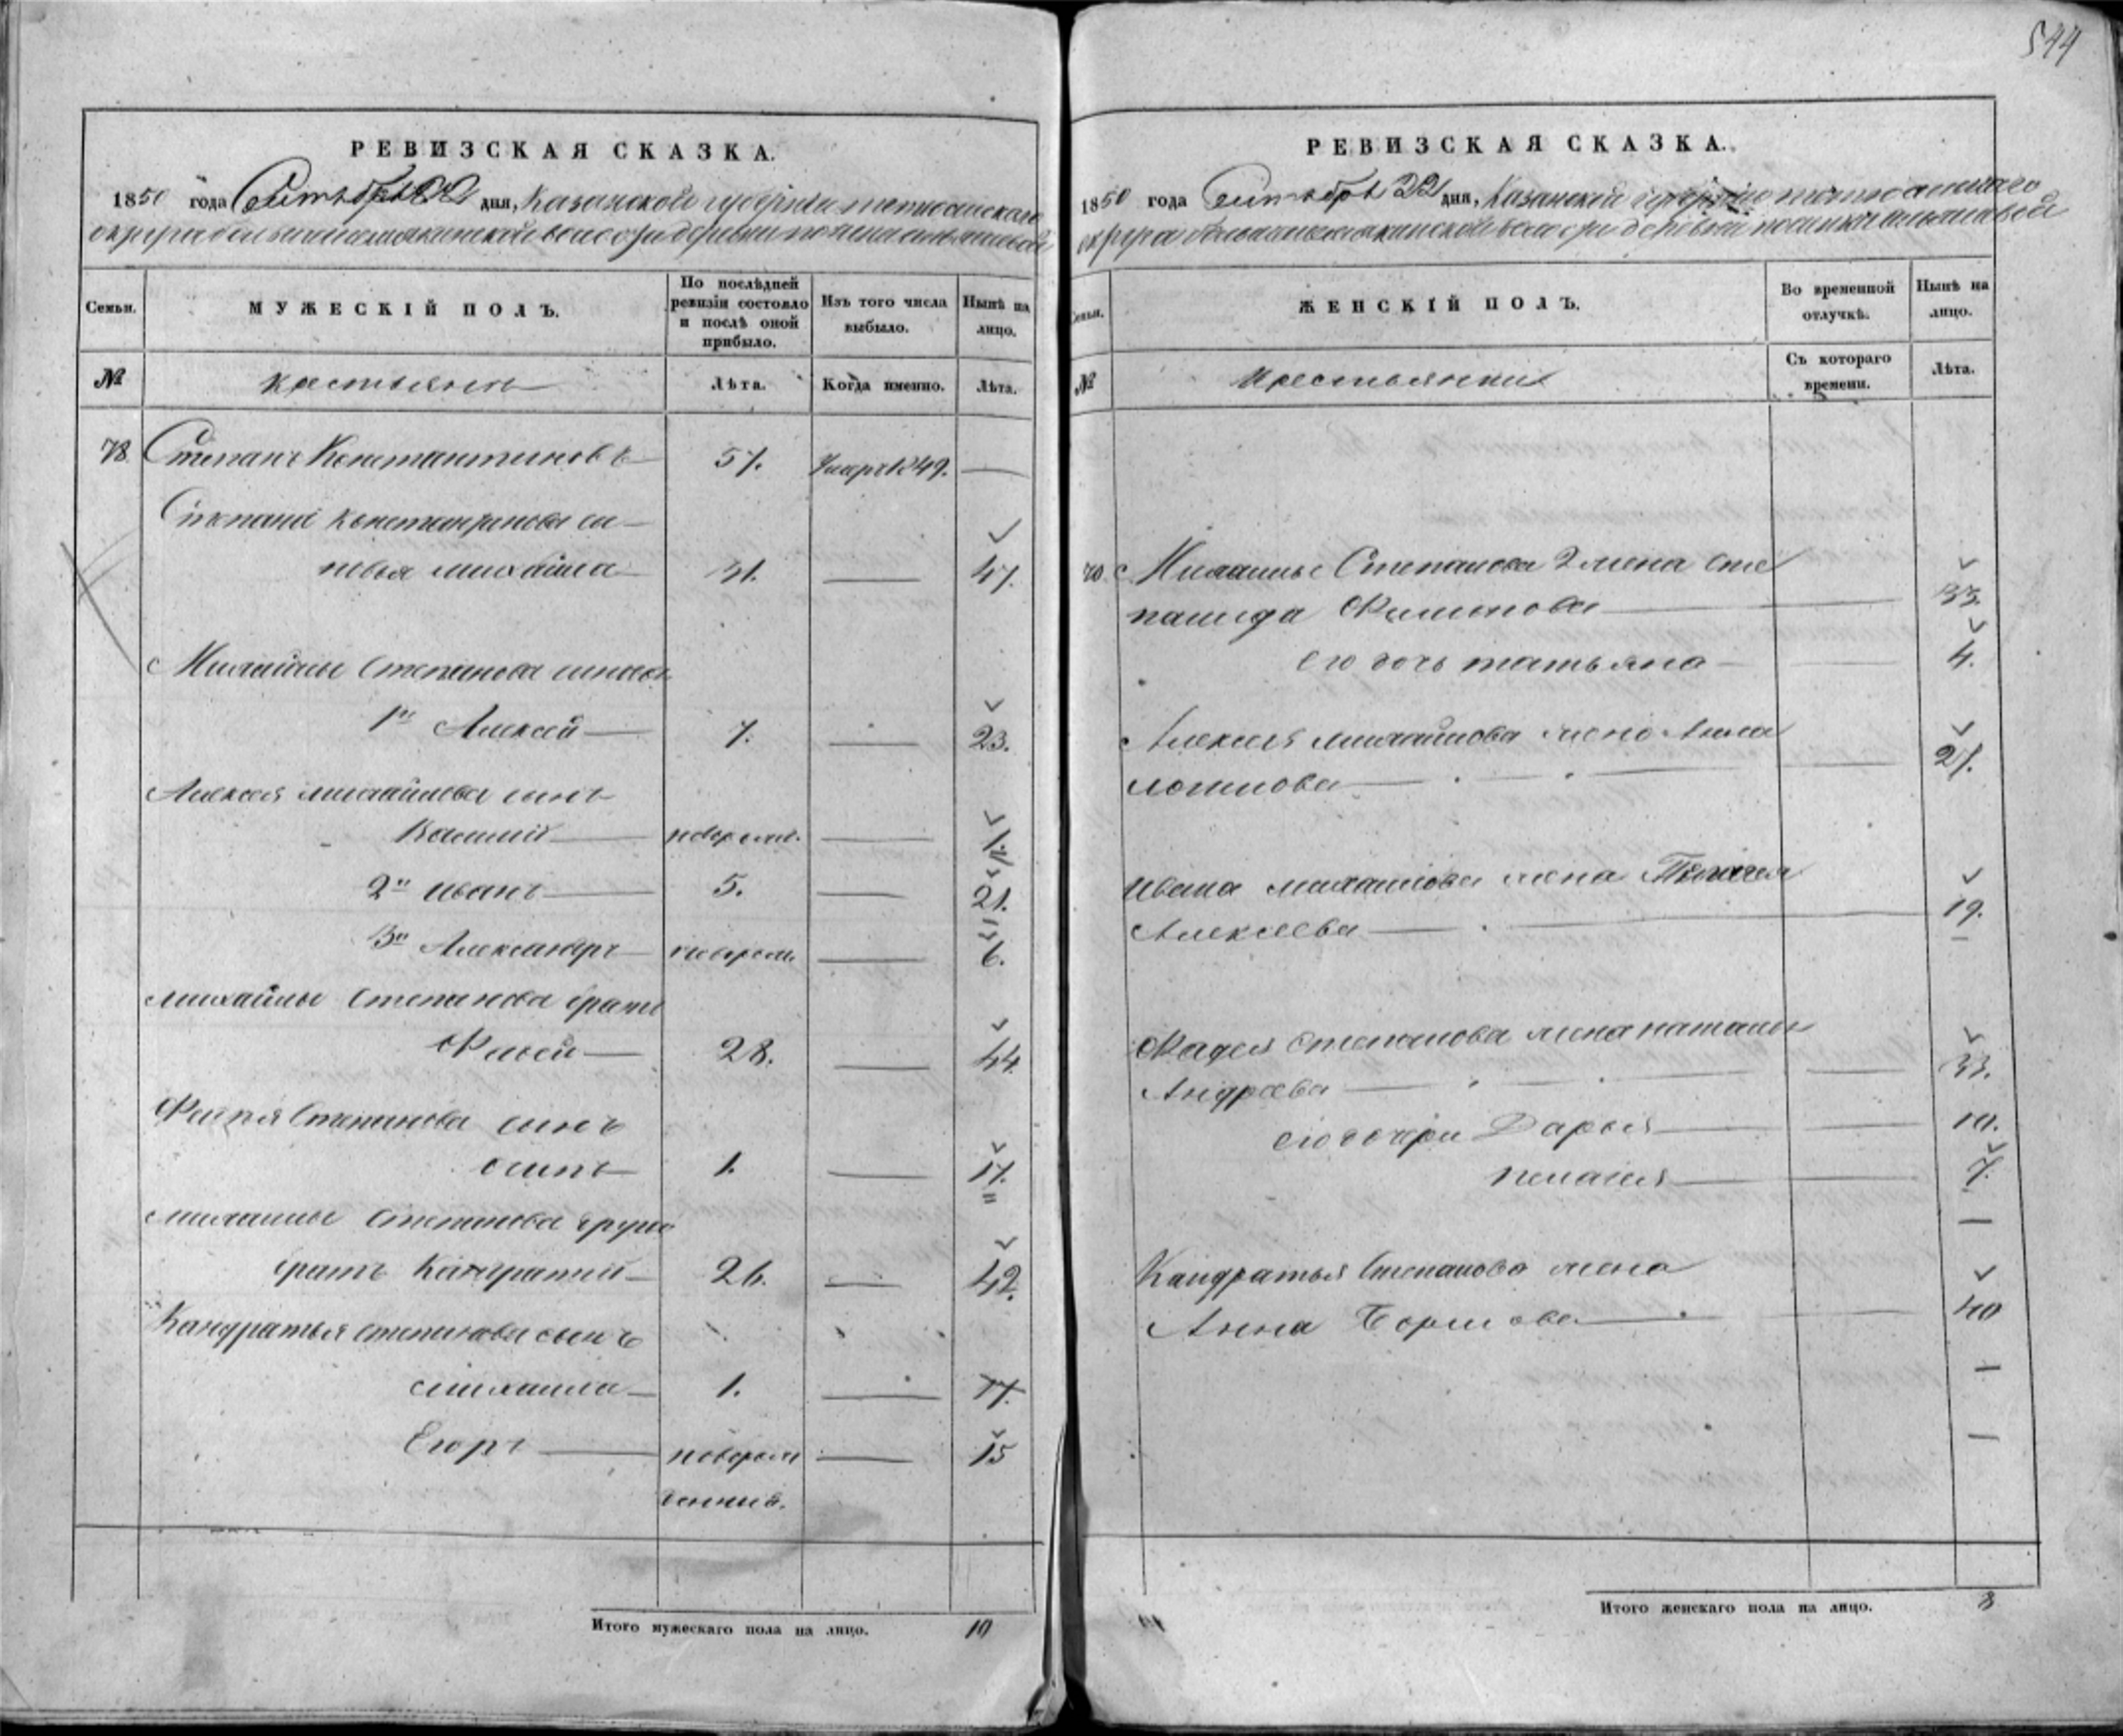 544
РЕВИЗСКАЯ СКАЗКА.
1850 года Сентября 22 дня, Казанской губернии тетюшскаго
округа волости деревни
Семьи. МУЖЕСКІЙ ПОЛЪ. По послѣдней ревизіи состояло и послѣ оной прибыло. Изъ того числа выбыло. Нынѣ на лицо.
№ крестьянъ Лѣта. Когда именно. Лѣта.
78 Степанъ Константиновъ 57. 1849. —
Степана Константинова сы-
новья михайла 31. — 47.
Михайлы Степанова сыновья
1й Алексей 7. — 23.
Алексея михайлова сынъ
Василий новорожд. — 1.
2й иванъ 5. — 21.
3й Александръ новорож. — 6.
михайлы Степанова братъ
28. — 44.
Степанова сынъ
осипъ 1. — 17.
михайлы Степанова другой
братъ Кандратий 26. — 42.
Кандратья степанова сынъ
михаила 1. — 17.
Егоръ новорож — 15
денный.
Итого мужескаго пола на лицо. 10
РЕВИЗСКАЯ СКАЗКА.
1850 года Сентября 22 дня, Казанской губернии тетюшскаго
округа волости деревни
Семьи. ЖЕНСКІЙ ПОЛЪ. Во временной отлучкѣ. Нынѣ на лицо.
№ Крестьянки Съ котораго времени. Лѣта.
Михайлы Степанова 2 жена сте
панида — 33.
его дочь татьяна — 4.
Алексея михайлова жена Анна
логинова — 27.
Ивана михайлова жена Пелагея
Алексеева — 19.
Степанова жена наталья
Андреева — 33.
его дочери Дарья — 10.
пелагея — 7.
Кандратья Степанова жена
Анна Борисова — 40
Итого женскаго пола на лицо. 8